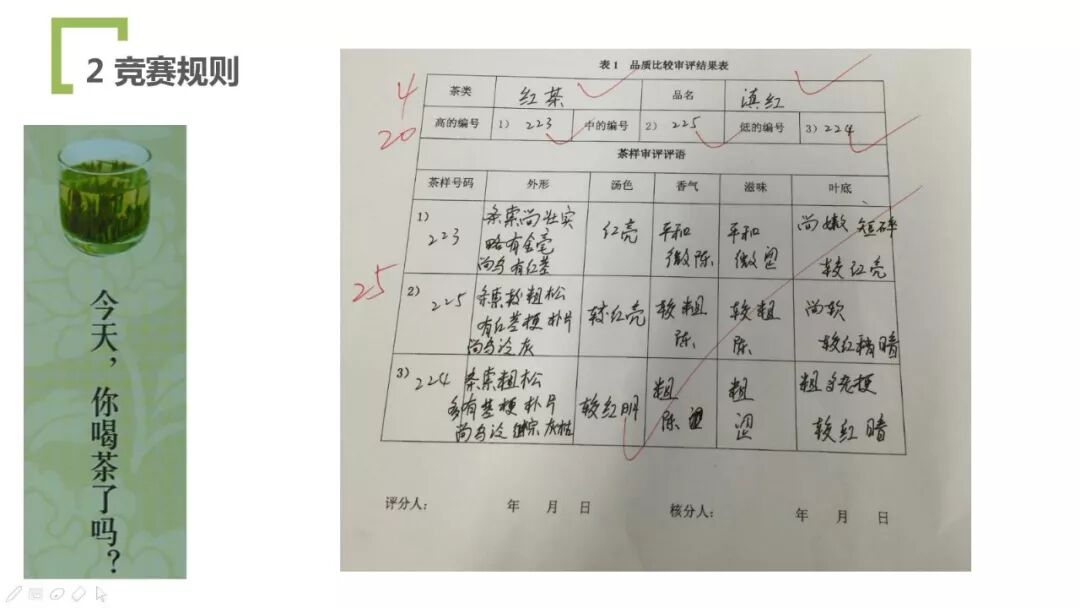 2 竞赛规则
今天，你喝茶了吗？
表1 品质比较审评结果表
4
茶类 红茶 品名 滇红
20
高的编号 1) 223 中的编号 2) 225 低的编号 3) 224
茶样审评评语
茶样号码 外形 汤色 香气 滋味 叶底
1) 223
条索尚壮实
略有金毫
尚乌有红茎
红亮
平和
微陈
平和
微涩
尚嫩 短碎
较红亮
25
2) 225
条索较粗松
有红茎梗 朴片
尚乌泛灰
较红亮
较粗
陈
较粗
陈
尚软
较红稍暗
3) 224
条索粗松
多有茎梗 朴片
尚乌泛 灰枯
较红明
粗
陈
粗
涩
粗 梗
较红暗
评分人： 年 月 日 核分人： 年 月 日